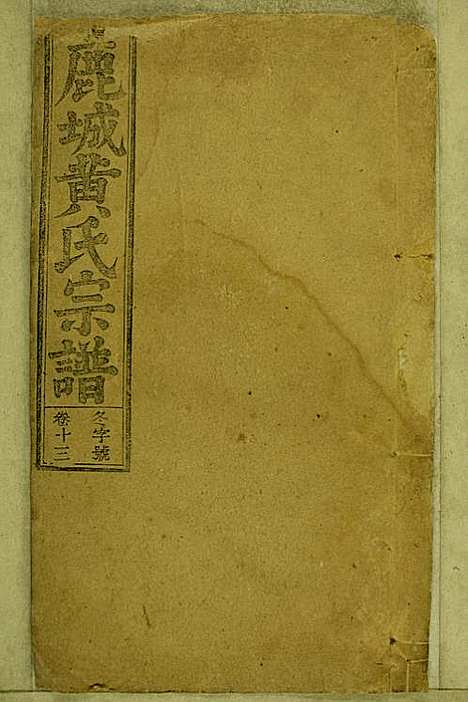 鹿城黄氏宗譜
冬字號
卷十三